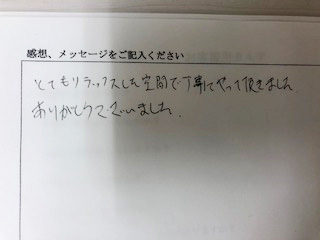 感想、メッセージをご記入ください
とてもリラックスした空間で丁寧にやって頂きました
ありがとうございました。